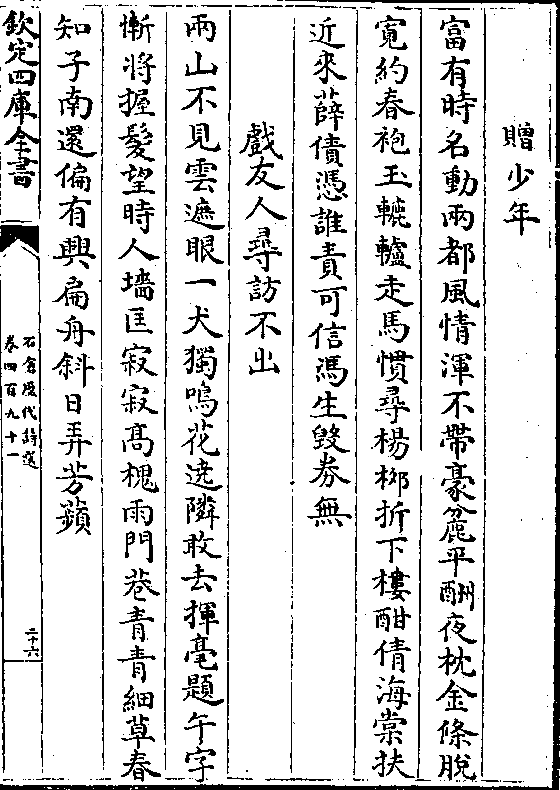 贈少年
富有時名動兩都風情渾不帶豪麄平酬夜枕金條脫
寛約春袍玉轆轤走馬慣尋楊栁折下樓酣倩海棠扶
近來薛債憑誰責可信馮生毀劵無
戲友人尋訪不出
兩山不見雲遮眼一犬獨鳴花遶隣敢去揮毫題午字
慚將握髮望時人墻匡寂寂髙槐雨門巷青青細草春
知子南還偏有興扁舟斜日弄芳蘋
欽定四庫全書
石倉歷代詩選
卷四百九十一
二十六